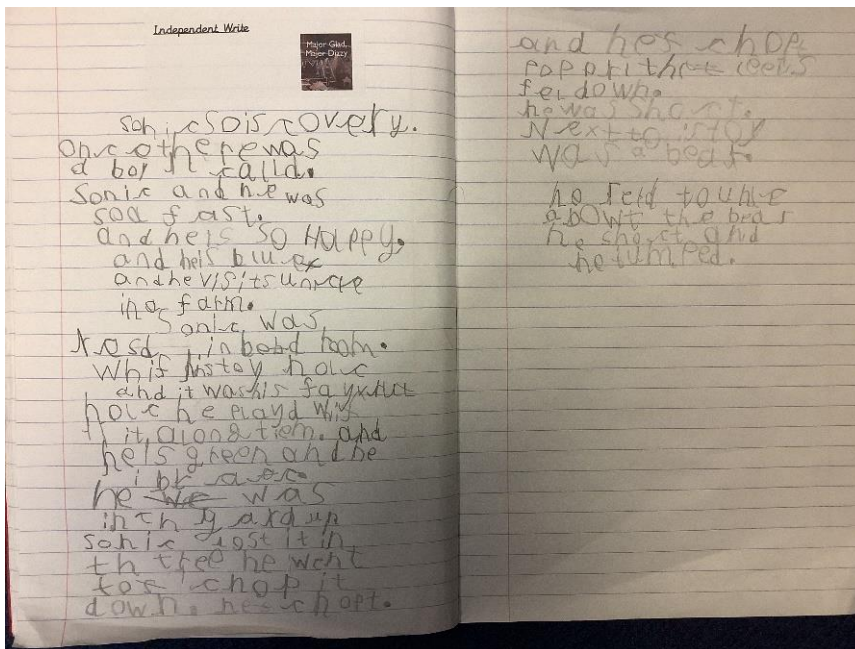 Independent Write
Major Glad,
Major Dizzy
sonicsdiscovery.
Once therewas
a boy calld.
Sonic and he was
soa fast.
and heis so Happy.
and heis blue
andhe visitsuncle
in a farm.
Sonic was
in bed room.
whif his toy
and it washis
he playd wif
it alongtiem. and
heis green and he
he was
in th
sonic lost it in
th tree he went
toe chop it
down. hes chopt.
and hes chop
the leevs
fel down.
he was shoct.
Next to is toy
was a bear.
he teld
abowt the bear
he shoct and
he jumped.